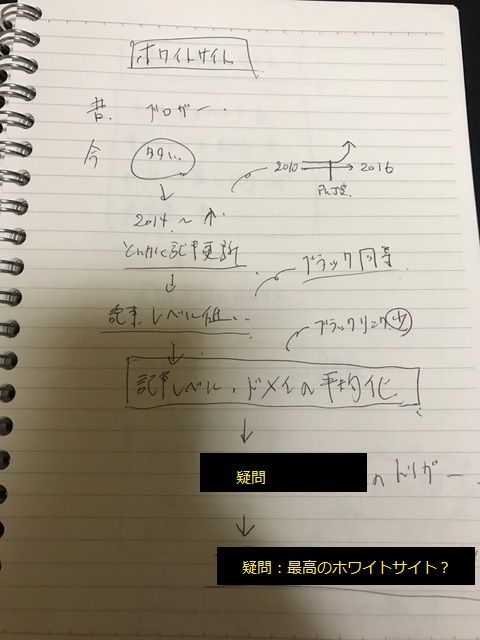 ホワイトサイト
昔. ブロガー.
今 多い.
2010 → 2016
2014. ~ ↑
とにかく記事更新
ブラック同等
記事レベル低い.
ブラックリンク 少
記事レベル・ドメインの平均化
疑問 のトリガー
疑問：最高のホワイトサイト？